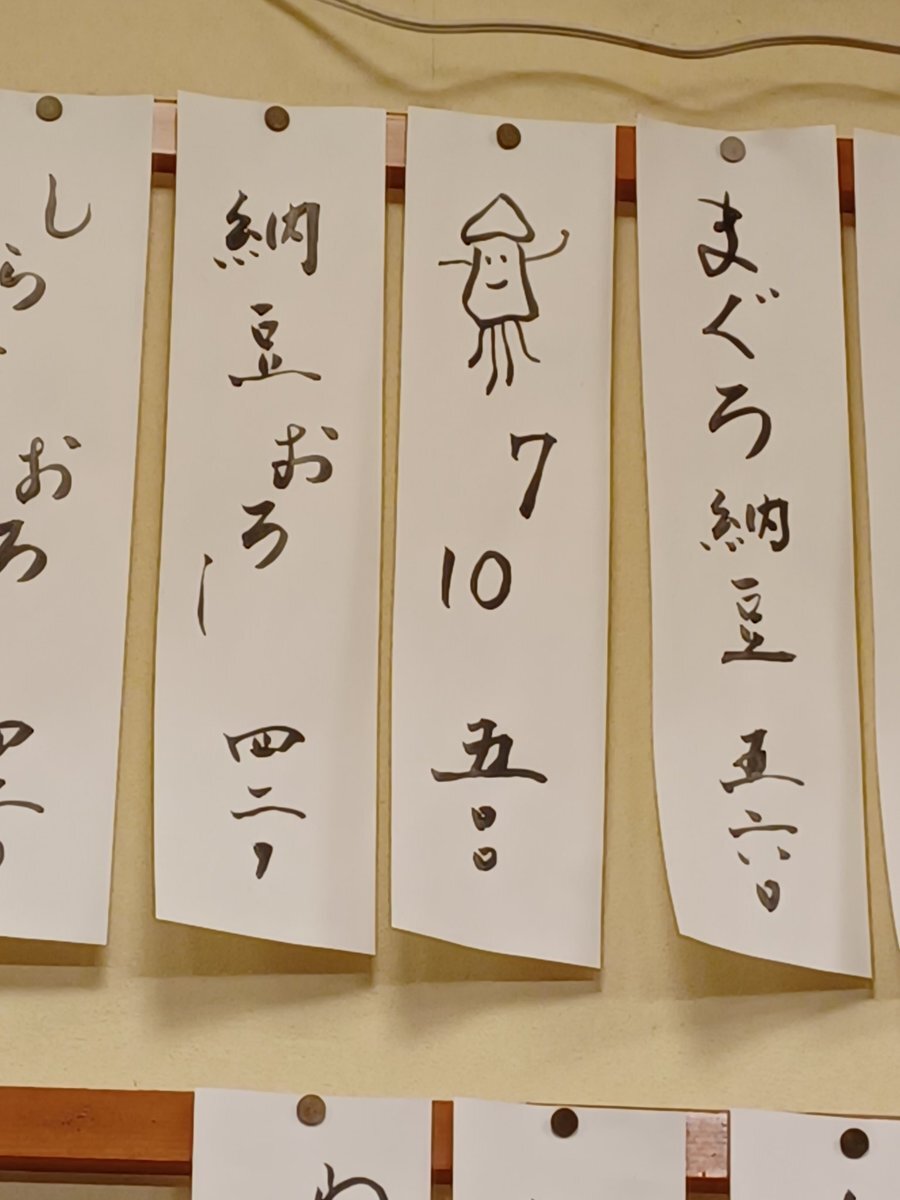 まぐろ納豆 五六〇
7 10 五〇〇
納豆おろし 四二〇
しら おろ 四二〇